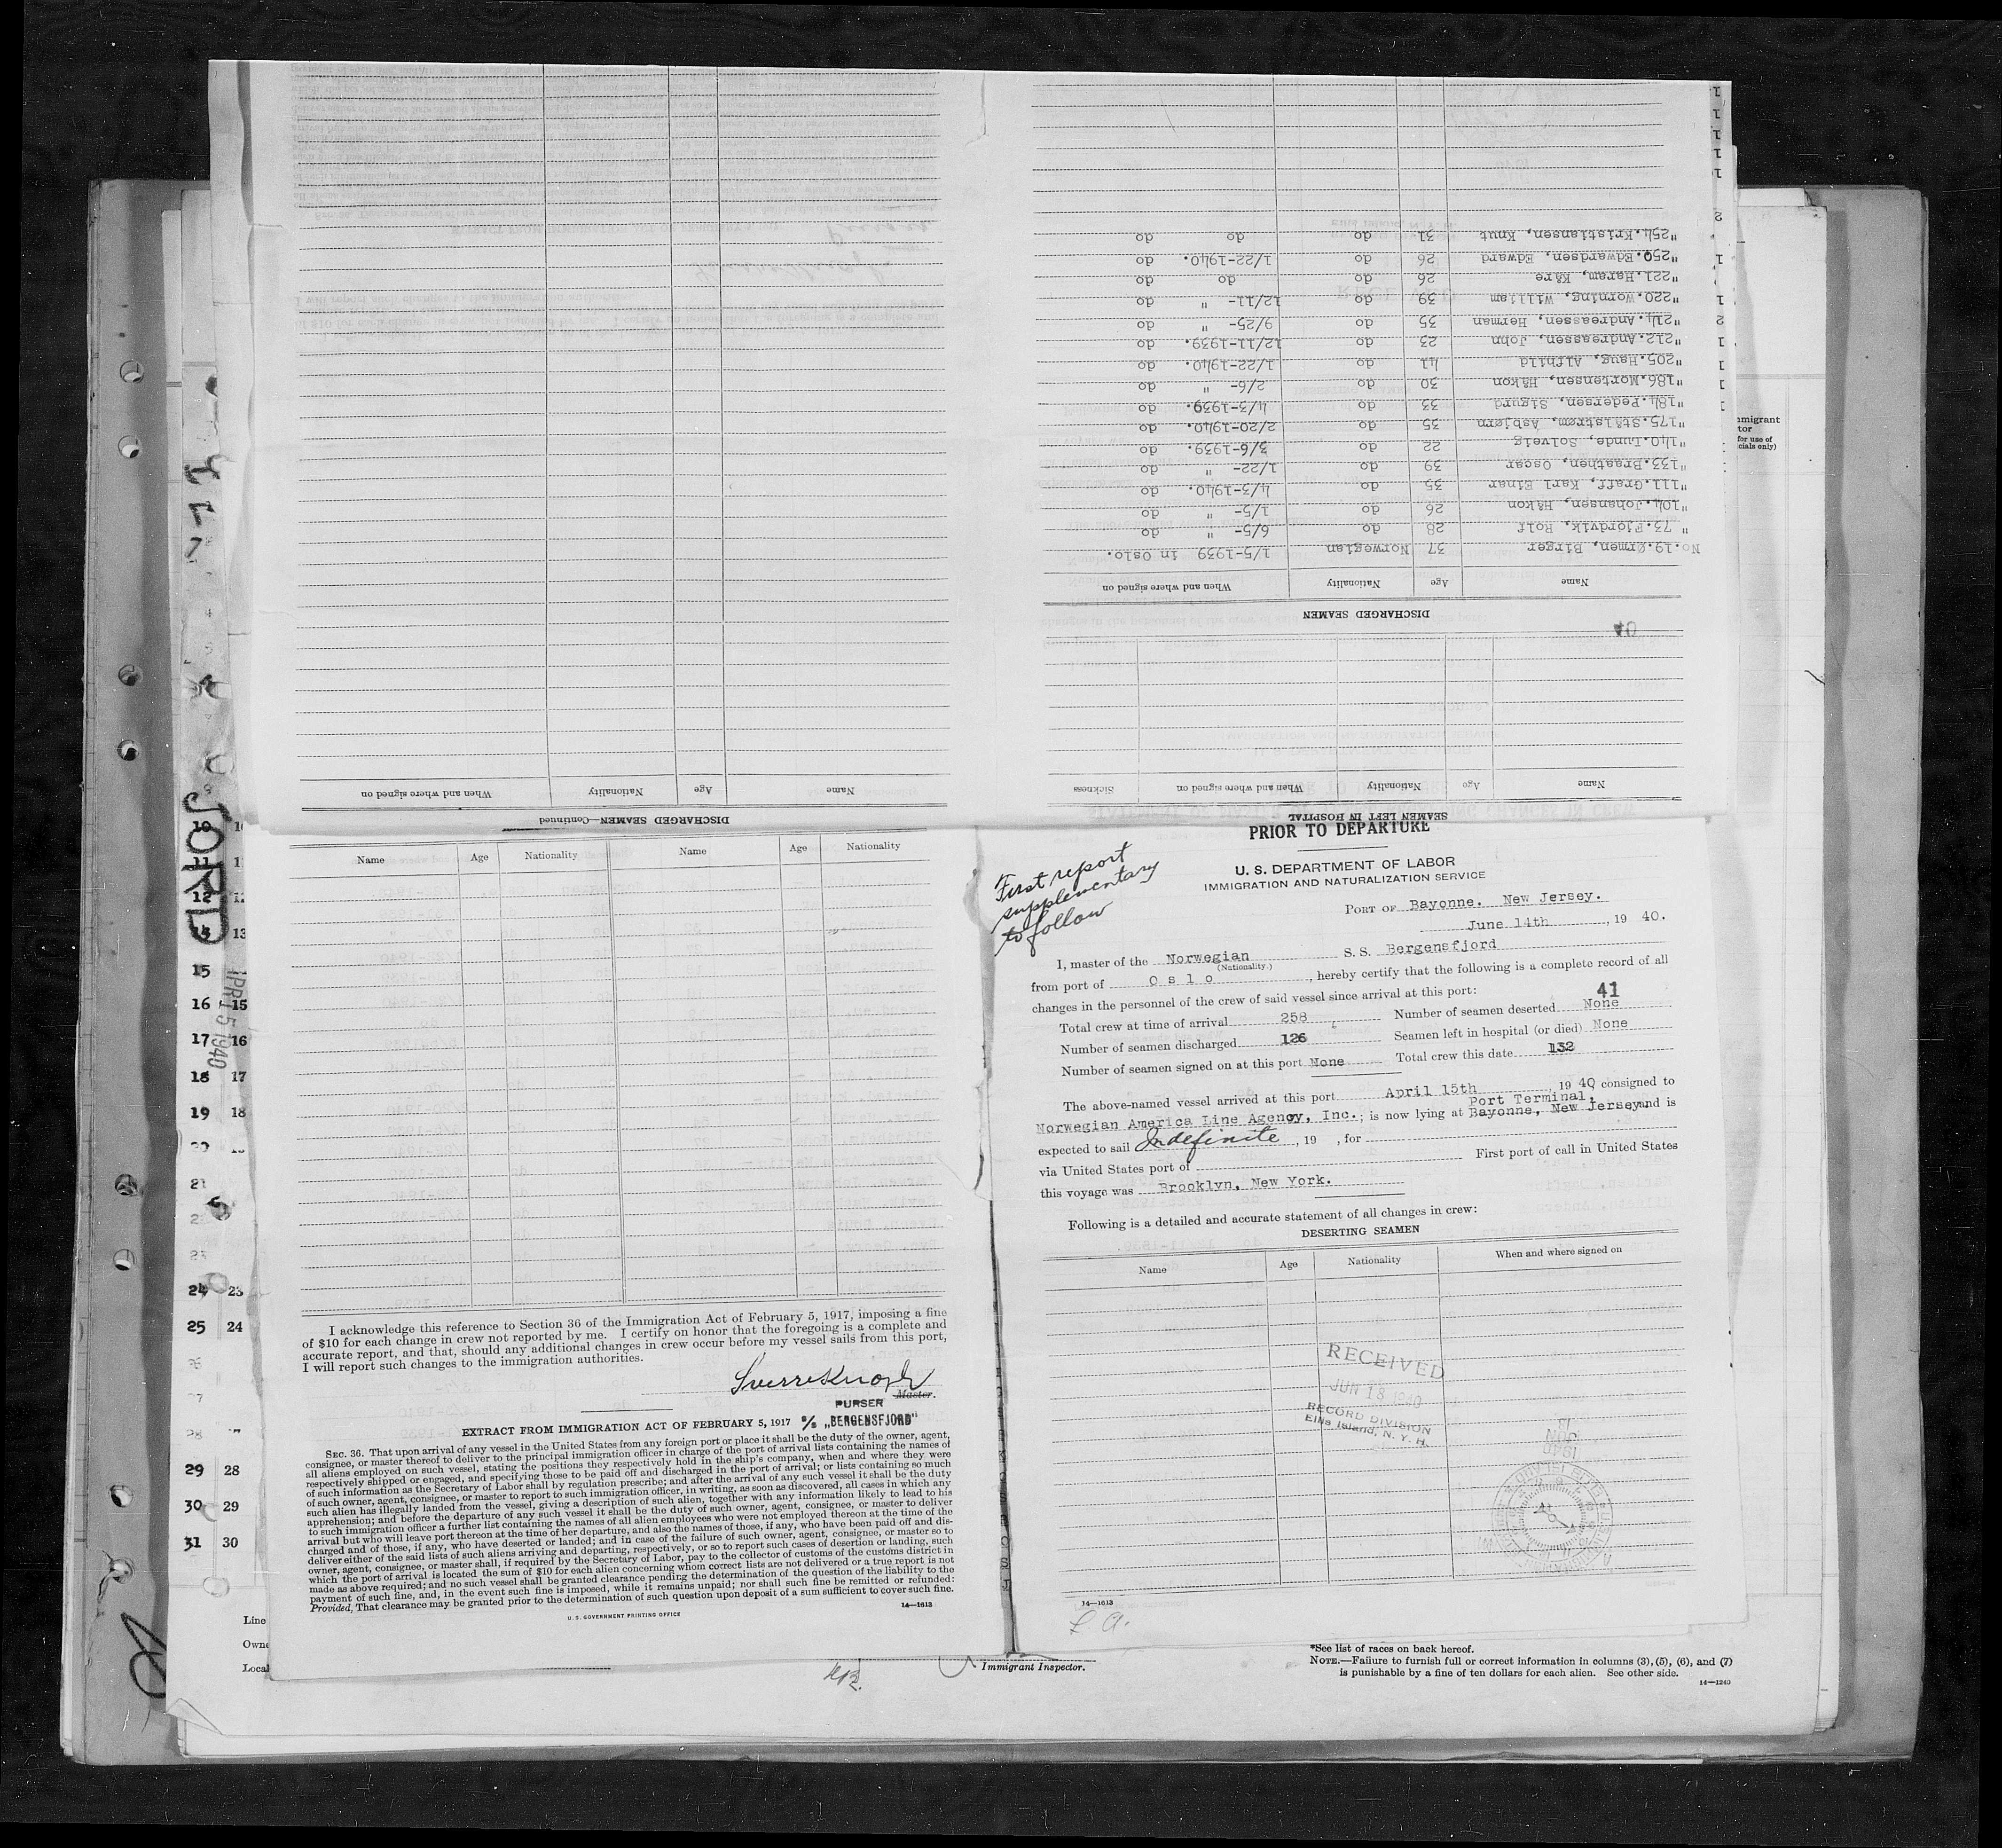 DISCHARGED SEAMEN
Name Age Nationality When and where signed on
No.19.Ørmen, Birger 37 Norwegian 1/5-1939 in Oslo.
" 73.Fjordvik, Rolf 28 do 6/5- " do
"104.Johansen, Håkon 26 do 1/5- " do
"111.Graff, Karl Einar 35 do 4/3-1940. do
"133.Braathen, Oscar 39 do 1/22- " do
"140.Lunde, Solveig 22 do 3/6-1939. do
"175.Stålstrøm, Asbjørn 35 do 2/20-1940. do
"184.Pedersen, Sigurd 33 do 4/3-1939. do
"186.Mortensen, Håkon 30 do 2/6- " do
"205.Haug, Alfhild 41 do 1/22-1940. do
"212.Andreassen, John 23 do 12/11-1939. do
"214.Andreassen, Herman 35 do 9/25- " do
"220.Worning, William 39 do 12/11- " do
"221.Haram, Kåre 26 do do do
"250.Edwardsen, Edward 26 do 1/22-1940. do
"254.Kristiansen, Knut 31 do do do
SEAMEN LEFT IN HOSPITAL
Name Age Nationality When and where signed on Sickness
DISCHARGED SEAMEN—Continued
Name Age Nationality When and where signed on
Name Age Nationality Name Age Nationality
I acknowledge this reference to Section 36 of the Immigration Act of February 5, 1917, imposing a fine
of $10 for each change in crew not reported by me. I certify on honor that the foregoing is a complete and
accurate report, and that, should any additional changes in crew occur before my vessel sails from this port,
I will report such changes to the immigration authorities.
Master.
PURSER
S/S „BERGENSFJORD"
EXTRACT FROM IMMIGRATION ACT OF FEBRUARY 5, 1917
SEC. 36. That upon arrival of any vessel in the United States from any foreign port or place it shall be the duty of the owner, agent,
consignee, or master thereof to deliver to the principal immigration officer in charge of the port of arrival lists containing the names of
all aliens employed on such vessel, stating the positions they respectively hold in the ship's company, when and where they were
respectively shipped or engaged, and specifying those to be paid off and discharged in the port of arrival; or lists containing so much
of such information as the Secretary of Labor shall by regulation prescribe; and after the arrival of any such vessel it shall be the duty
of such owner, agent, consignee, or master to report to such immigration officer, in writing, as soon as discovered, all cases in which any
such alien has illegally landed from the vessel, giving a description of such alien, together with any information likely to lead to his
apprehension; and before the departure of any such vessel it shall be the duty of such owner, agent, consignee, or master to deliver
to such immigration officer a further list containing the names of all alien employees who were not employed thereon at the time of the
arrival but who will leave port thereon at the time of her departure, and also the names of those, if any, who have been paid off and dis-
charged and of those, if any, who have deserted or landed; and in case of the failure of such owner, agent, consignee, or master so to
deliver either of the said lists of such aliens arriving and departing, respectively, or so to report such cases of desertion or landing, such
owner, agent, consignee, or master shall, if required by the Secretary of Labor, pay to the collector of customs of the customs district in
which the port of arrival is located the sum of $10 for each alien concerning whom correct lists are not delivered or a true report is not
made as above required; and no such vessel shall be granted clearance pending the determination of the question of the liability to the
payment of such fine, and, in the event such fine is imposed, while it remains unpaid; nor shall such fine be remitted or refunded:
Provided, That clearance may be granted prior to the determination of such question upon deposit of a sum sufficient to cover such fine.
U. S. GOVERNMENT PRINTING OFFICE 14—1613
PRIOR TO DEPARTURE
First report
supplementary
to follow
U. S. DEPARTMENT OF LABOR
IMMIGRATION AND NATURALIZATION SERVICE
PORT OF Bayonne. New Jersey.
June 14th, 19 40.
I, master of the Norwegian S. S. Bergensfjord
(Nationality.)
from port of Oslo, hereby certify that the following is a complete record of all
changes in the personnel of the crew of said vessel since arrival at this port:
41
Total crew at time of arrival 258 Number of seamen deserted None
Number of seamen discharged 126 Seamen left in hospital (or died) None
Number of seamen signed on at this port None Total crew this date 132
The above-named vessel arrived at this port April 15th, 19 40, consigned to
Port Terminal,
Norwegian America Line Agency, Inc.; is now lying at Bayonne, New Jersey and is
expected to sail Indefinite, 19 , for
via United States port of First port of call in United States
this voyage was Brooklyn, New York.
Following is a detailed and accurate statement of all changes in crew:
DESERTING SEAMEN
Name Age Nationality When and where signed on
RECEIVED
JUN 18 1940
RECORD DIVISION
Ellis Island, N. Y. H.
14—1613
Immigrant Inspector.
*See list of races on back hereof.
NOTE.—Failure to furnish full or correct information in columns (3), (5), (6), and (7)
is punishable by a fine of ten dollars for each alien. See other side.
14—1240